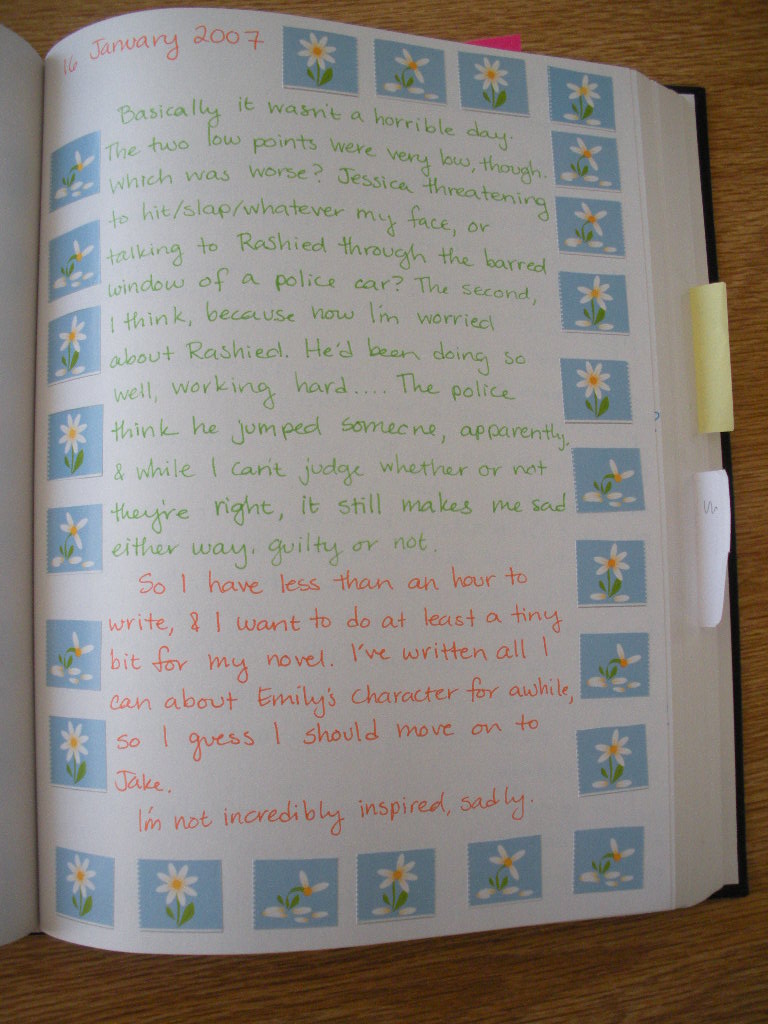 16 January 2007
Basically it wasn't a horrible day.
The two low points were very low, though.
Which was worse? Jessica threatening
to hit/slap/whatever my face, or
talking to Rashied through the barred
window of a police car? The second,
I think, because now I'm worried
about Rashied. He'd been doing so
well, working hard.... The police
think he jumped someone, apparently,
& while I can't judge whether or not
they're right, it still makes me sad
either way, guilty or not.
So I have less than an hour to
write, & I want to do at least a tiny
bit for my novel. I've written all I
can about Emily's character for awhile,
so I guess I should move on to
Jake.
I'm not incredibly inspired, sadly.